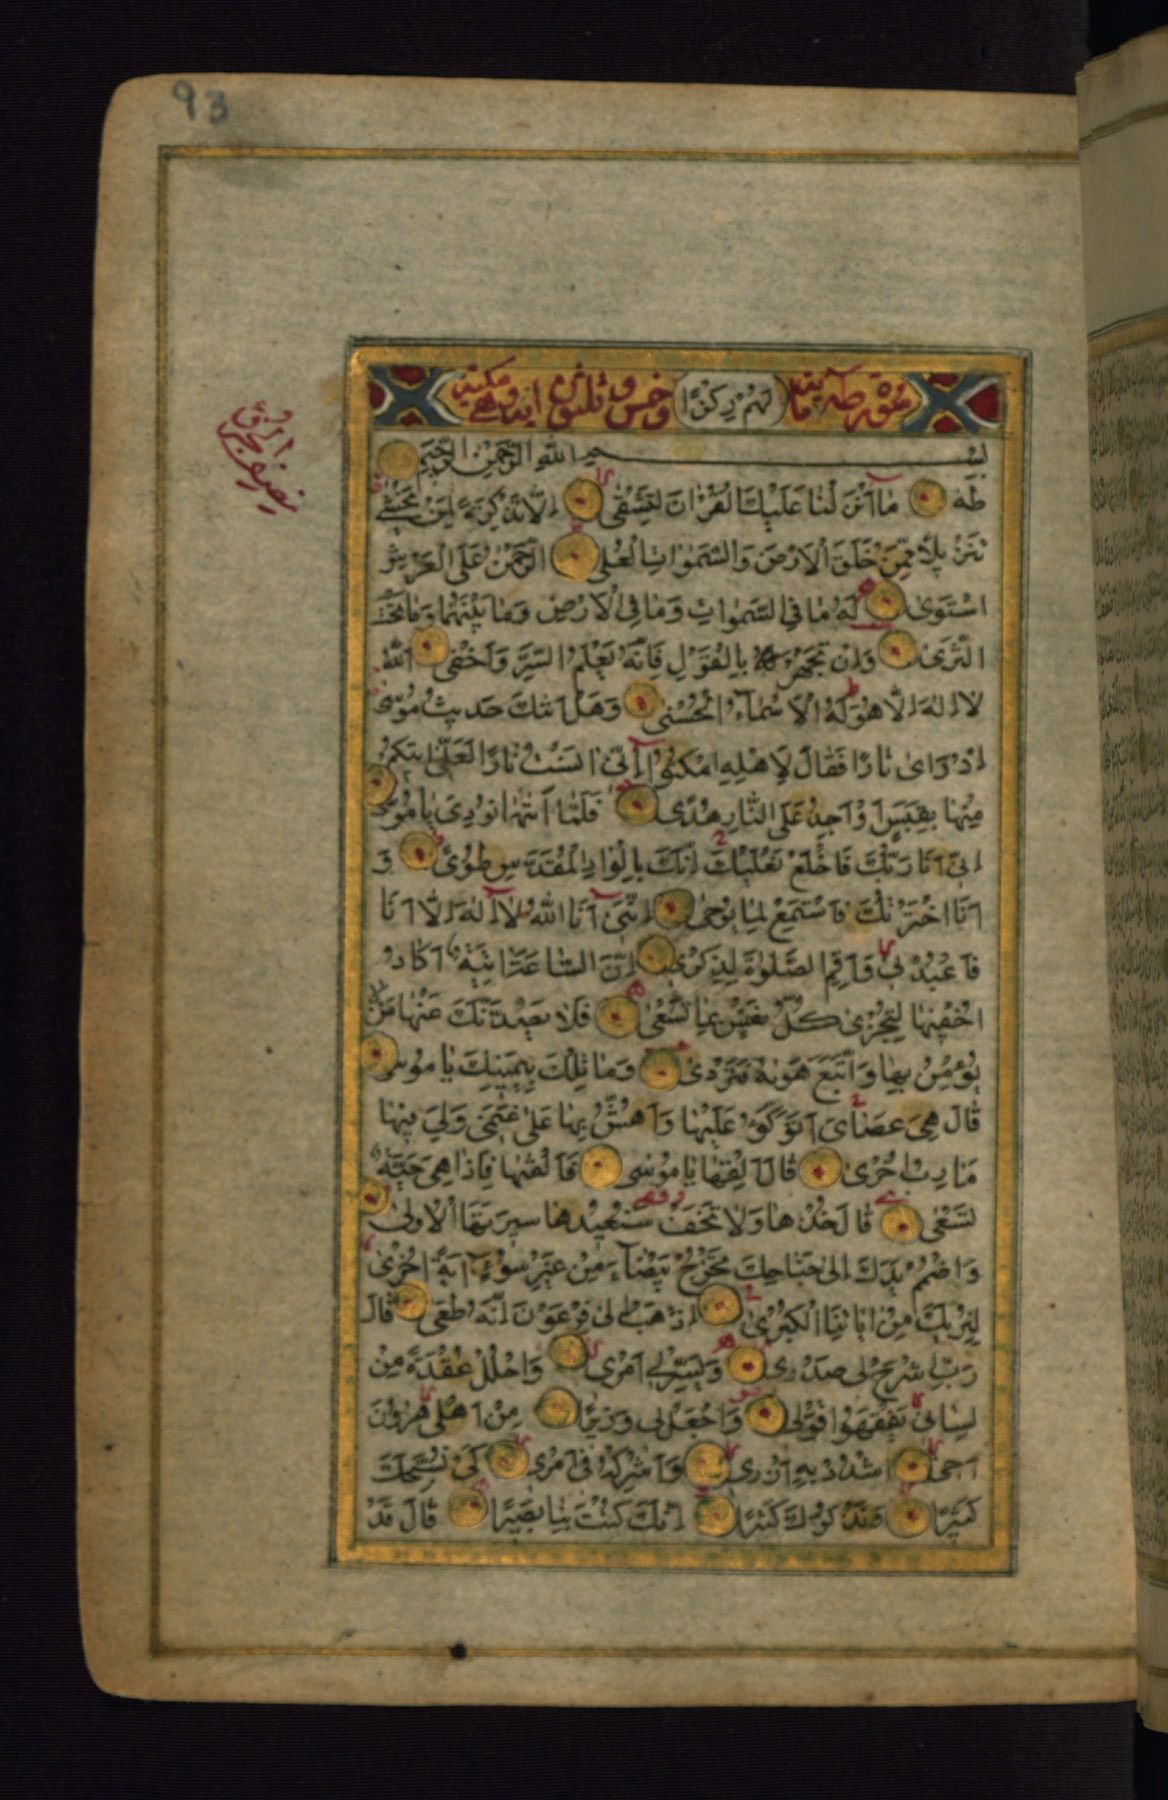 93
سورة طه مائة
لهم ركزا
وخمس وثلثون آية وهي مكية
بسم الله الرحمن الرحيم
طه ما أنزلنا عليك القرآن لتشقى إلا تذكرة لمن يخشى
تنزيلا ممن خلق الأرض والسموات العلى الرحمن على العرش
استوى له ما في السموات وما في الأرض وما بينهما وما تحت
الثرى وإن تجهر بالقول فإنه يعلم السر وأخفى الله
لا إله إلا هو له الأسماء الحسنى وهل أتىك حديث موسى
إذ رأى نارا فقال لأهله امكثوا إني آنست نارا لعلي آتيكم
منها بقبس أو أجد على النار هدى فلما أتىها نودي يا موسى
إني أنا ربك فاخلع نعليك إنك بالواد المقدس طوى و
أنا اخترتك فاستمع لما يوحى إنني أنا الله لا إله إلا أنا
فاعبدني وأقم الصلوة لذكري إن الساعة آتية أكاد
أخفيها لتجزى كل نفس بما تسعى فلا يصدنك عنها من
يؤمن بها واتبع هويه فتردى وما تلك بيمينك يا موسى
قال هي عصاي أتوكؤ عليها وأهش بها على غنمي ولي فيها
مآرب أخرى قال ألقها يا موسى فألقىها فإذا هي حية
تسعى قال خذها ولا تخف سنعيدها سيرتها الأولى
واضمم يدك إلى جناحك تخرج بيضاء من غير سوء آية أخرى
لنريك من آياتنا الكبرى اذهب إلى فرعون إنه طغى قال
رب اشرح لي صدري ويسر لي أمري واحلل عقدة من
لساني يفقهوا قولي واجعل لي وزيرا من أهلي هرون
أخي اشدد به أزري وأشركه في أمري كي نسبحك
كثيرا ونذكرك كثيرا إنك كنت بنا بصيرا قال قد